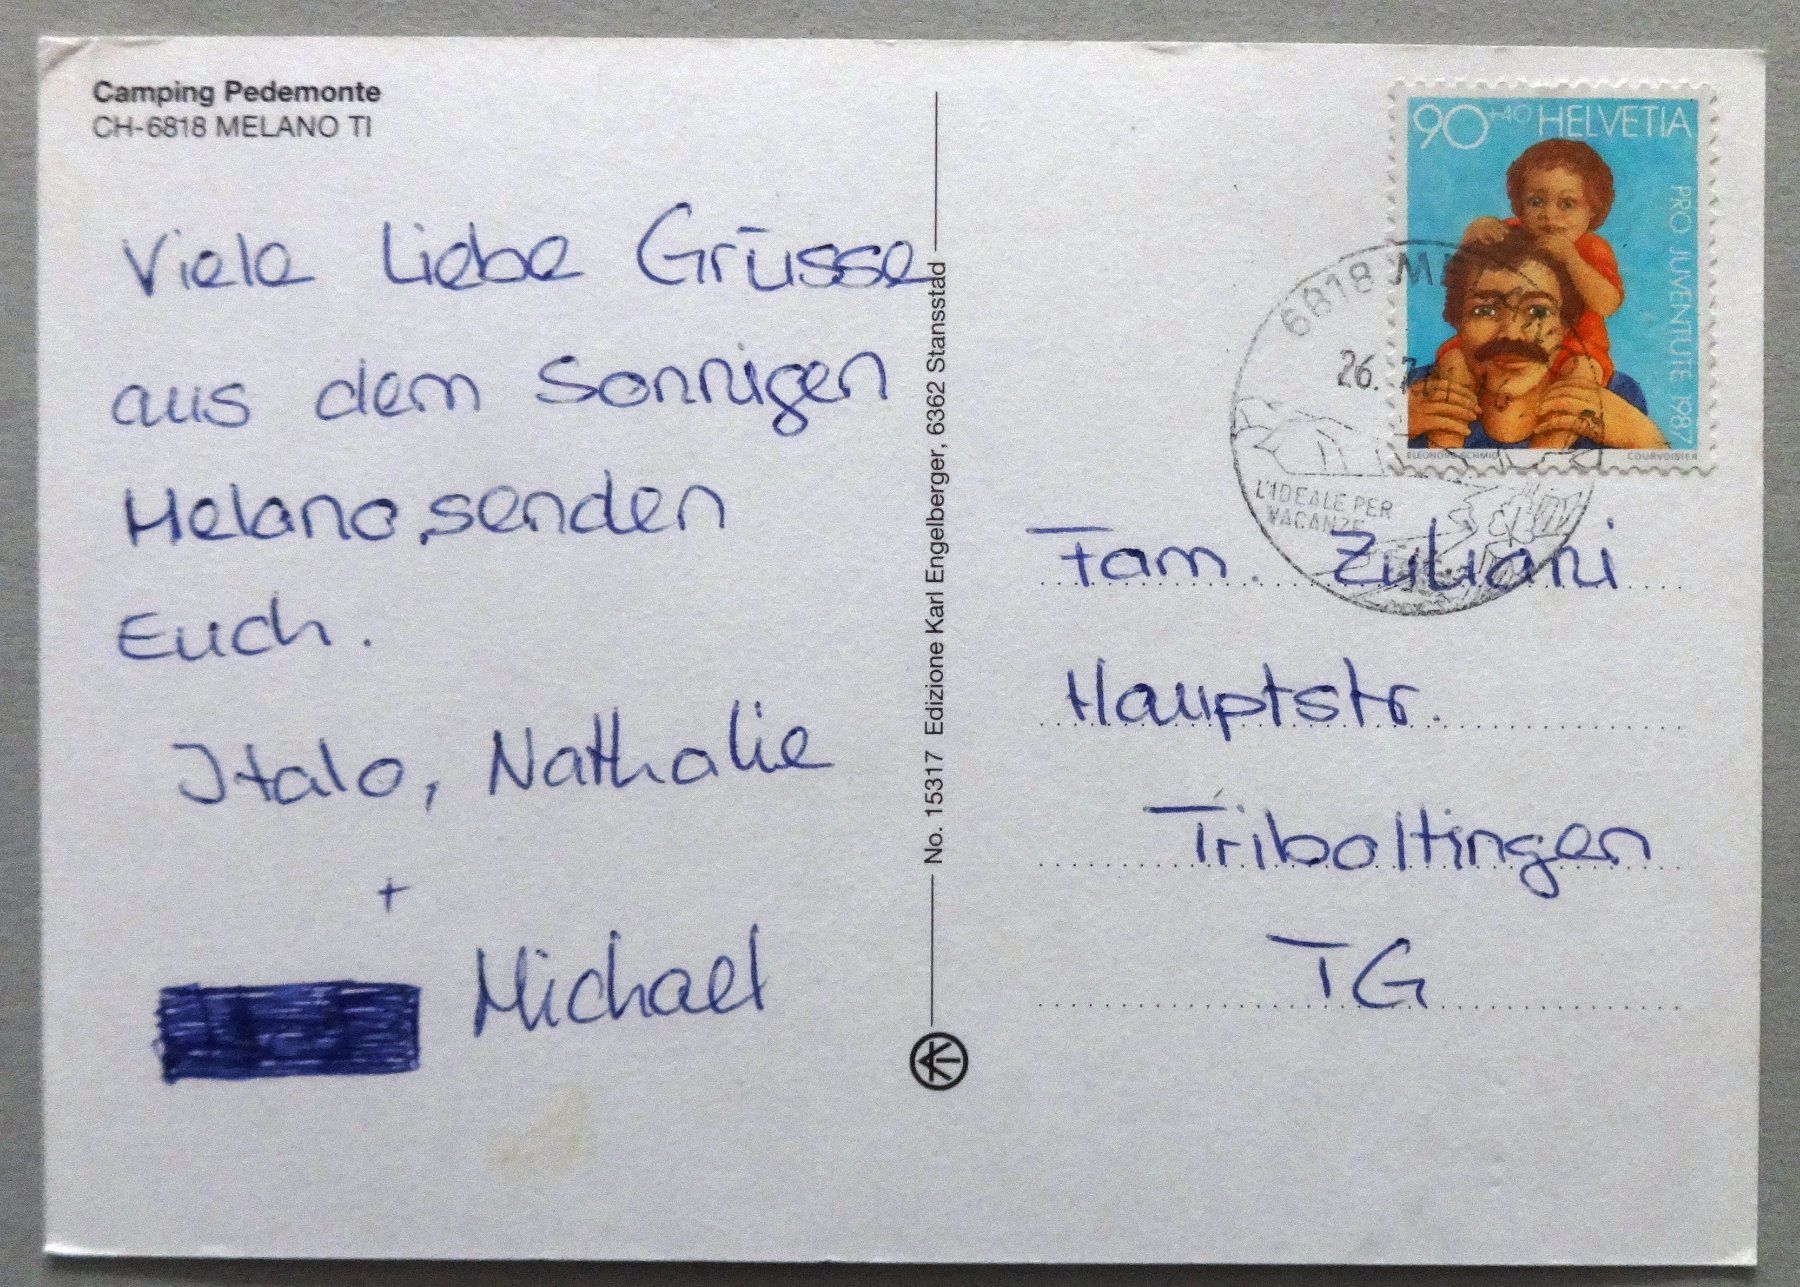 Camping Pedemonte
CH-6818 MELANO TI
Viele Liebe Grüsse
aus dem Sonnigen
Melano, senden
Euch.
Italo, Nathalie
+
Michael
No. 15317 Edizione Karl Engelberger, 6362 Stansstad
90+40 HELVETIA
PRO JUVENTUTE 1987
ELEONORE SCHMID COURVOISIER
6818 M
26. 7
L'IDEALE PER
VACANZE
Fam. Zuliani
Hauptstr.
Triboltingen
TG